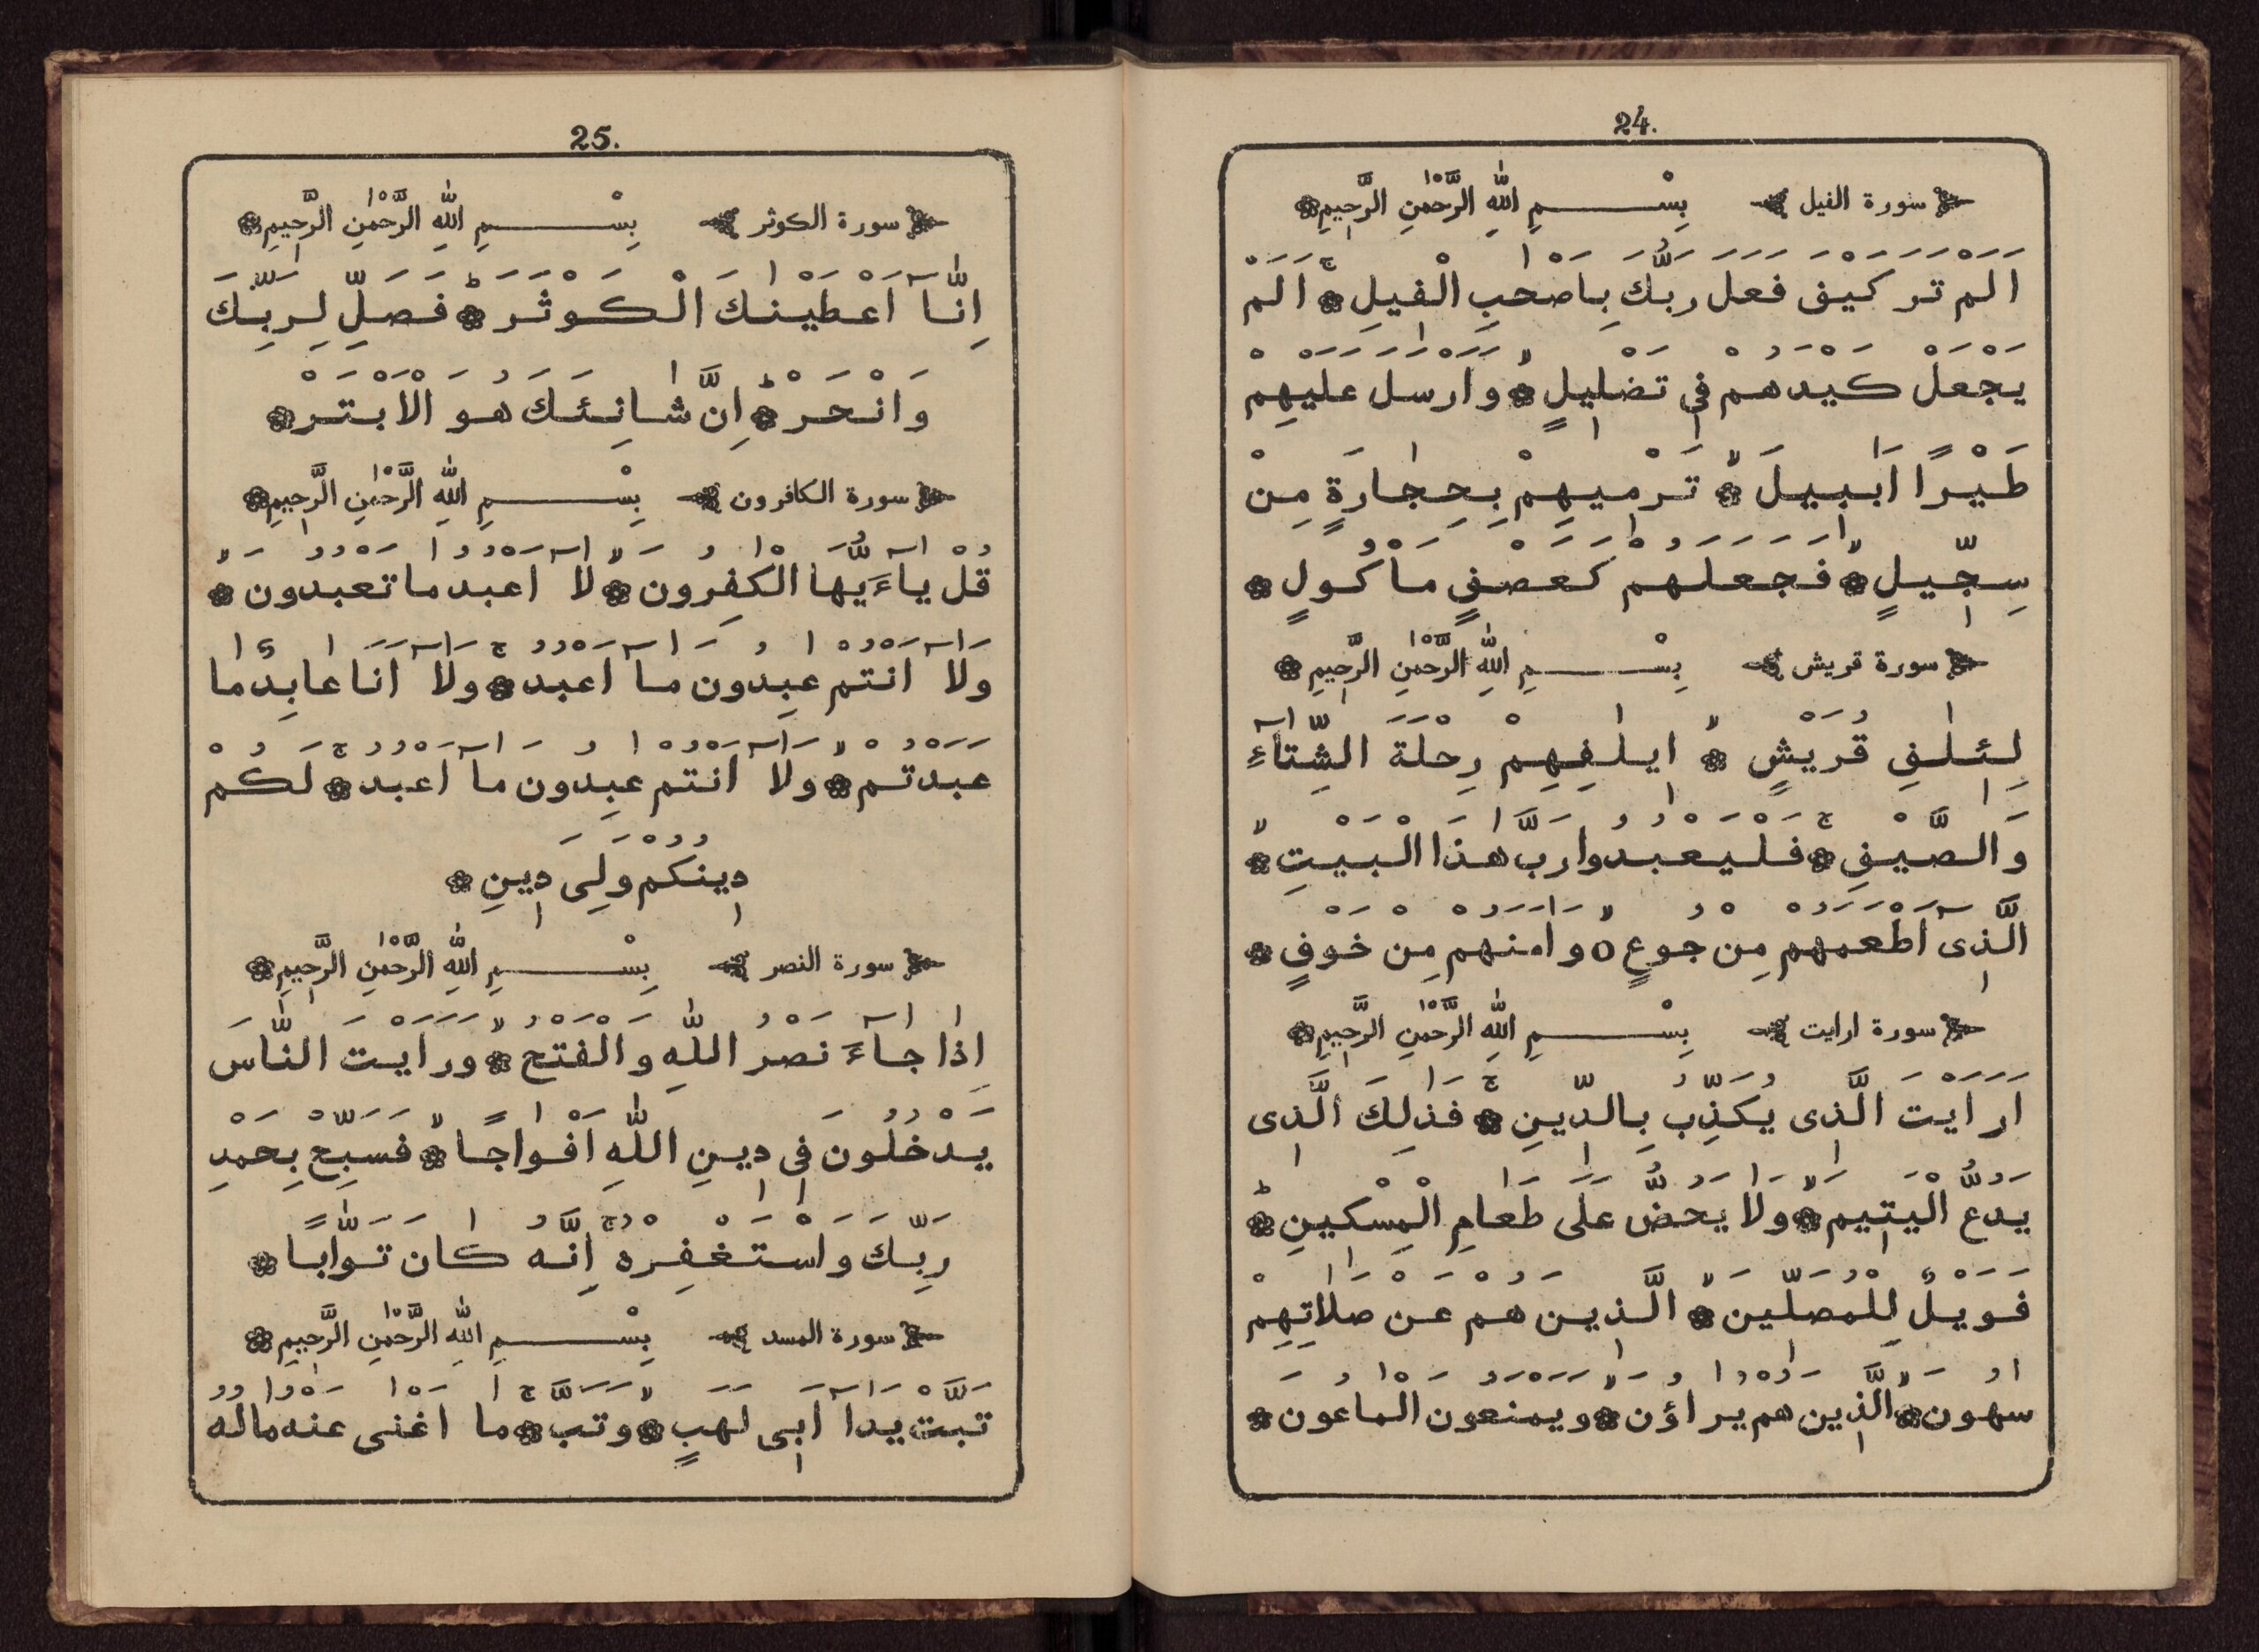 24.
سورة الفيل بِسْمِ اللّٰهِ الرَّحْمٰنِ الرَّحِيمِ
اَلَمْ تَرَ كَيْفَ فَعَلَ رَبُّكَ بِاَصْحٰبِ الْفِيلِ ۚ اَلَمْ
يَجْعَلْ كَيْدَهُمْ فِى تَضْلِيلٍ ۙ وَاَرْسَلَ عَلَيْهِمْ
طَيْرًا اَبَٰبِيلَ ۙ تَرْمِيهِمْ بِحِجَٰارَةٍ مِنْ
سِجِّيلٍ ۙ فَجَعَلَهُمْ كَعَصْفٍ مَاْكُولٍ
سورة قريش بِسْمِ اللّٰهِ الرَّحْمٰنِ الرَّحِيمِ
لِئِلٰفِ قُرَيْشٍ ۙ ايلٰفِهِمْ رِحْلَةَ الشِّتَٰآءِ
وَالصَّيْفِ ۚ فَلْيَعْبُدُوا رَبَّ هٰذَا الْبَيْتِ ۙ
الَّذِىٓ اَطْعَمَهُمْ مِن جُوعٍ وَاٰمَنَهُمْ مِن خَوْفٍ
سورة ارايت بِسْمِ اللّٰهِ الرَّحْمٰنِ الرَّحِيمِ
اَرَاَيْتَ الَّذِى يُكَذِّبُ بِالدِّينِ ۚ فَذٰلِكَ الَّذِى
يَدُعُّ الْيَتِيمَ ۙ وَلَا يَحُضُّ عَلَى طَعَامِ الْمِسْكِينِ ۗ
فَوَيْلٌ لِلْمُصَلِّينَ ۙ الَّذِينَ هُمْ عَنْ صَلَاتِهِمْ
سٰهُونَ ۙ الَّذِينَ هُمْ يُرَاؤُنَ ۙ وَيَمْنَعُونَ الْمَاعُونَ
25.
سورة الكوثر بِسْمِ اللّٰهِ الرَّحْمٰنِ الرَّحِيمِ
اِنَّآ اَعْطَيْنٰكَ الْكَوْثَرَ ۗ فَصَلِّ لِرَبِّكَ
وَانْحَرْ ۗ اِنَّ شَانِئَكَ هُوَ الْاَبْتَرْ
سورة الكافرون بِسْمِ اللّٰهِ الرَّحْمٰنِ الرَّحِيمِ
قُلْ يَآءَيُّهَا الْكٰفِرُونَ ۙ لَآ اَعْبُدُ مَا تَعْبُدُونَ ۙ
وَلَآ اَنْتُمْ عٰبِدُونَ مَآ اَعْبُدُ ۚ وَلَآ اَنَا عَابِدٌ مَا
عَبَدْتُمْ ۙ وَلَآ اَنْتُمْ عٰبِدُونَ مَآ اَعْبُدُ ۚ لَكُمْ
دِينُكُمْ وَلِىَ دِينِ
سورة النصر بِسْمِ اللّٰهِ الرَّحْمٰنِ الرَّحِيمِ
اِذَا جَآءَ نَصْرُ اللّٰهِ وَالْفَتْحُ ۙ وَرَاَيْتَ النَّاسَ
يَدْخُلُونَ فِى دِينِ اللّٰهِ اَفْوَاجًا ۙ فَسَبِّحْ بِحَمْدِ
رَبِّكَ وَاسْتَغْفِرْهُ ۚ اِنَّهُ كَانَ تَوَّابًا
سورة المسد بِسْمِ اللّٰهِ الرَّحْمٰنِ الرَّحِيمِ
تَبَّتْ يَدَآ اَبِى لَهَبٍ ۙ وَتَبَّ ۚ مَا اَغْنٰى عَنْهُ مَالُهُ